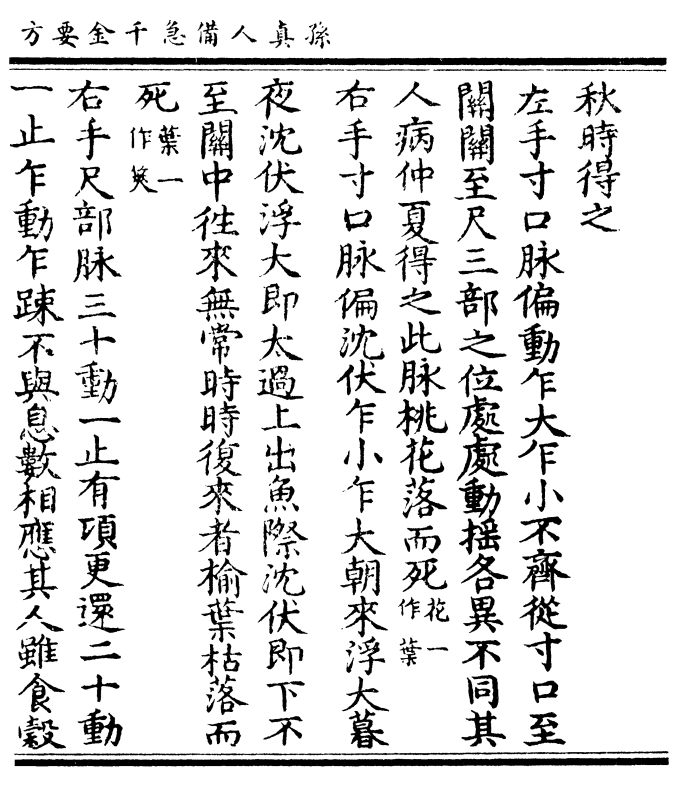 孫真人備急千金要方
秋時得之
左手寸口脉偏動乍大乍小不齊從寸口至
關關至尺三部之位處處動揺各異不同其
人病仲夏得之此脉桃花落而死花一作葉
右手寸口脉偏沈伏乍小乍大朝來浮大暮
夜沈伏浮大即太過上出魚際沈伏即下不
至關中徃來無常時時復來者榆葉枯落而
死葉一作莢
右手尺部脉三十動一止有頃更還二十動
一止乍動乍踈不與息數相應其人雖食穀